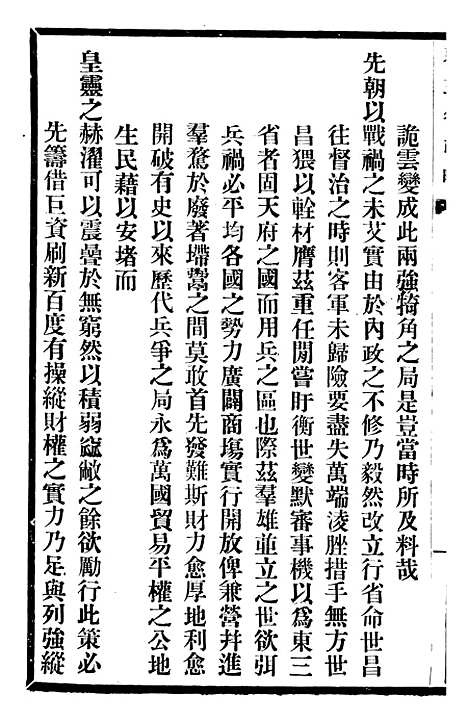 詭雲變成此兩強犄角之局是豈當時所及料哉
先朝以戰禍之未艾實由於內政之不修乃毅然改立行省命世昌
往督治之時則客軍未歸險要盡失萬端淩脞措手無方世
昌猥以輇材膺茲重任閒嘗盱衡世變默審事機以為東三
省者固天府之國而用兵之區也際茲羣雄並立之世欲弭
兵禍必平均各國之勢力廣闢商場實行開放俾兼營幷進
羣騖於廢著墆鬻之間莫敢首先發難斯財力愈厚地利愈
開破有史以來歷代兵爭之局永為萬國貿易平權之公地
生民藉以安堵而
皇靈之赫濯可以震疊於無窮然以積弱窳敝之餘欲勵行此策必
先籌借巨資刷新百度有操縱財權之實力乃足與列強縱